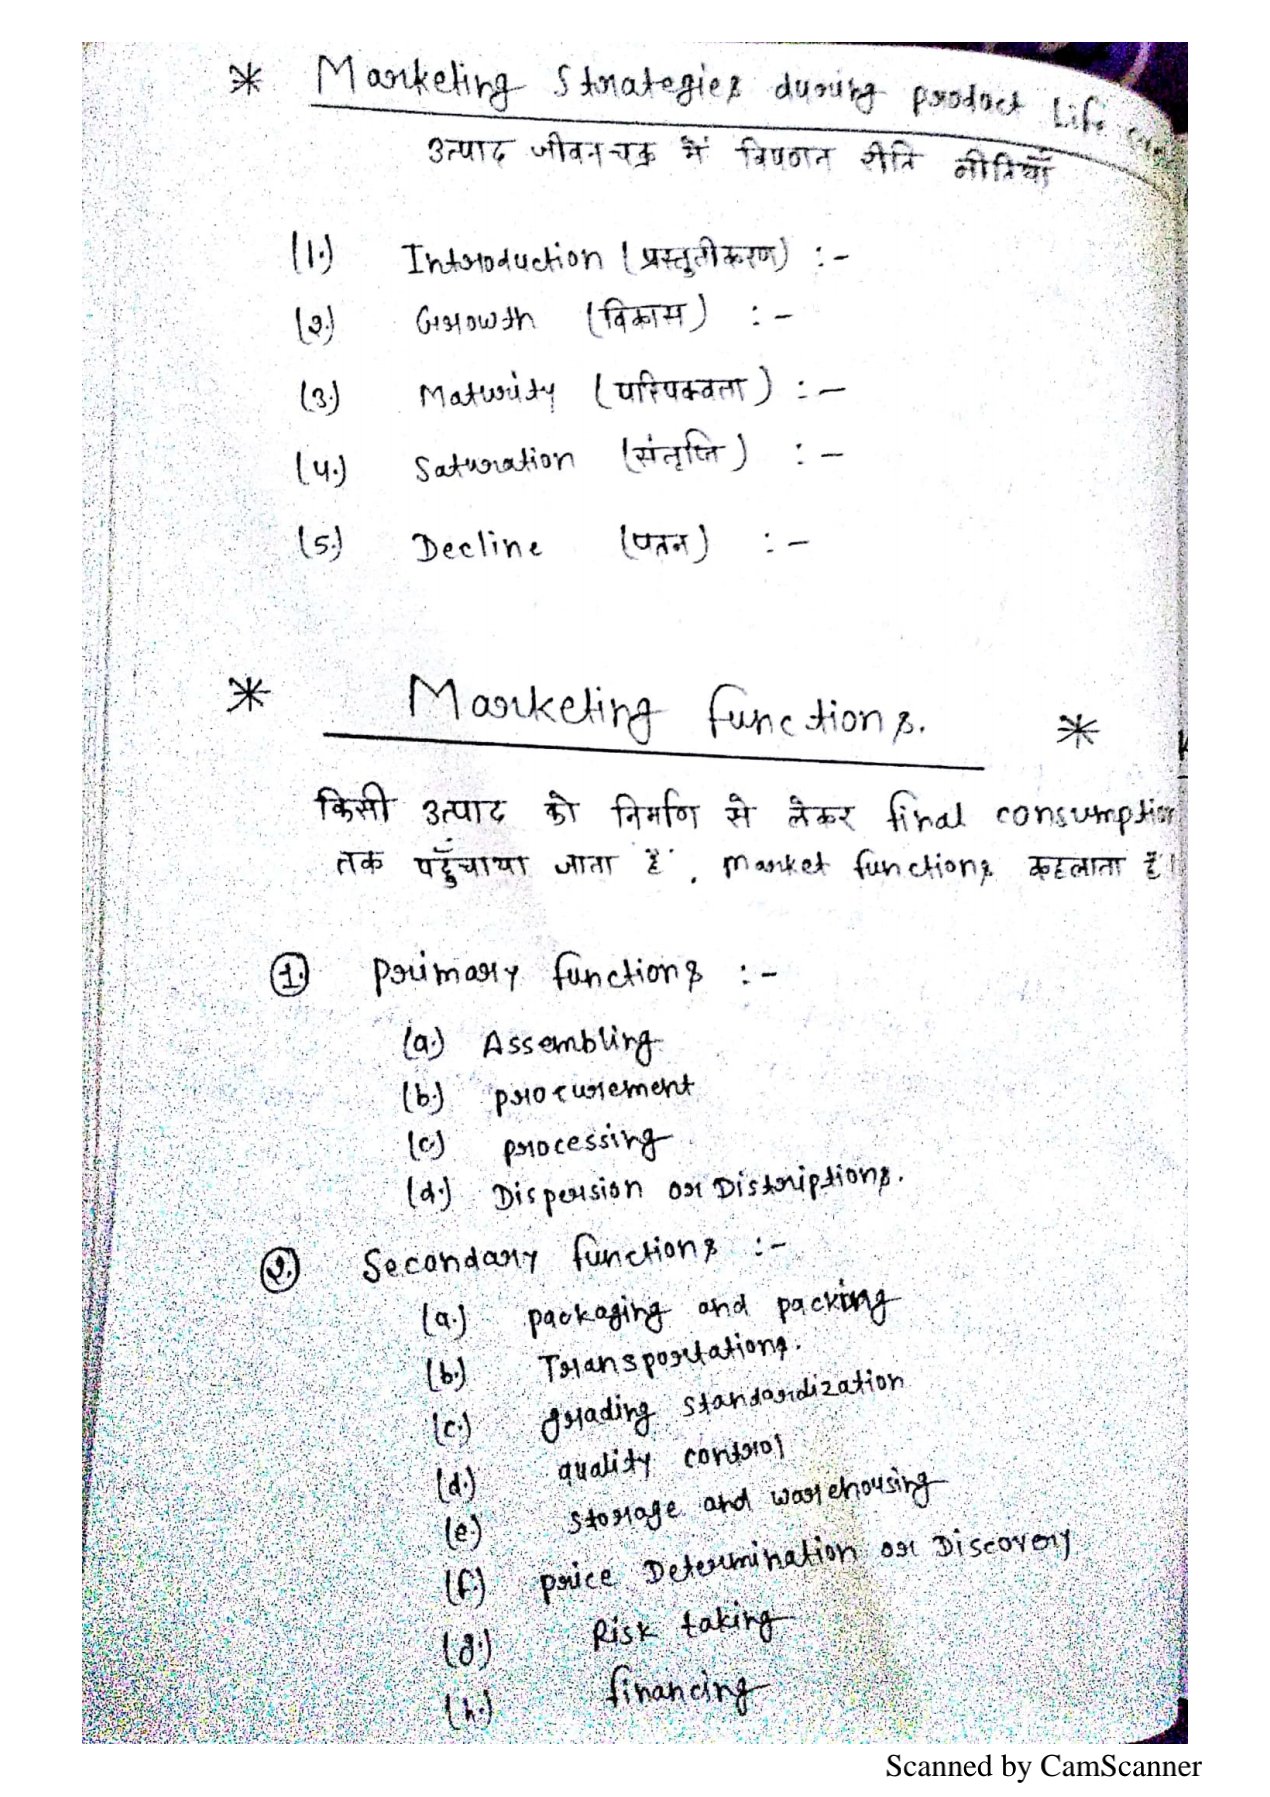 * Marketing Strategies during product Life
उत्पाद जीवनचक्र में विपणन रीति नीतियाँ
(1.) Introduction (प्रस्तुतीकरण) :-
(2.) Growth (विकास) :-
(3.) Maturity (परिपक्वता) :-
(4.) Saturation (संतृप्ति) :-
(5.) Decline (पतन) :-
* Marketing functions. *
किसी उत्पाद को निर्माण से लेकर final consumption
तक पहुँचाया जाता है, market functions कहलाता है।
1. Primary functions :-
(a.) Assembling
(b.) procurement
(c.) processing
(d.) Dispersion or Distriptions.
2. Secondary functions :-
(a.) packaging and packing
(b.) Transportations.
(c.) grading standardization
(d.) quality control
(e.) storage and warehousing
(f.) price Determination or Discovery
(g.) Risk taking
(h.) financing
Scanned by CamScanner